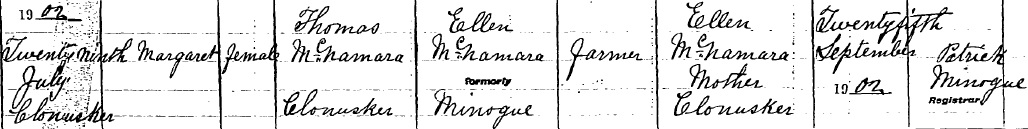 1902 Twenty Ninth July Clonusker
Margaret
female
Thomas McNamara Clonusker
Ellen McNamara formerly Minogue
Farmer
Ellen McNamara Mother Clonusker
Twentyfifth September 1902
Patrick Minogue Registrar